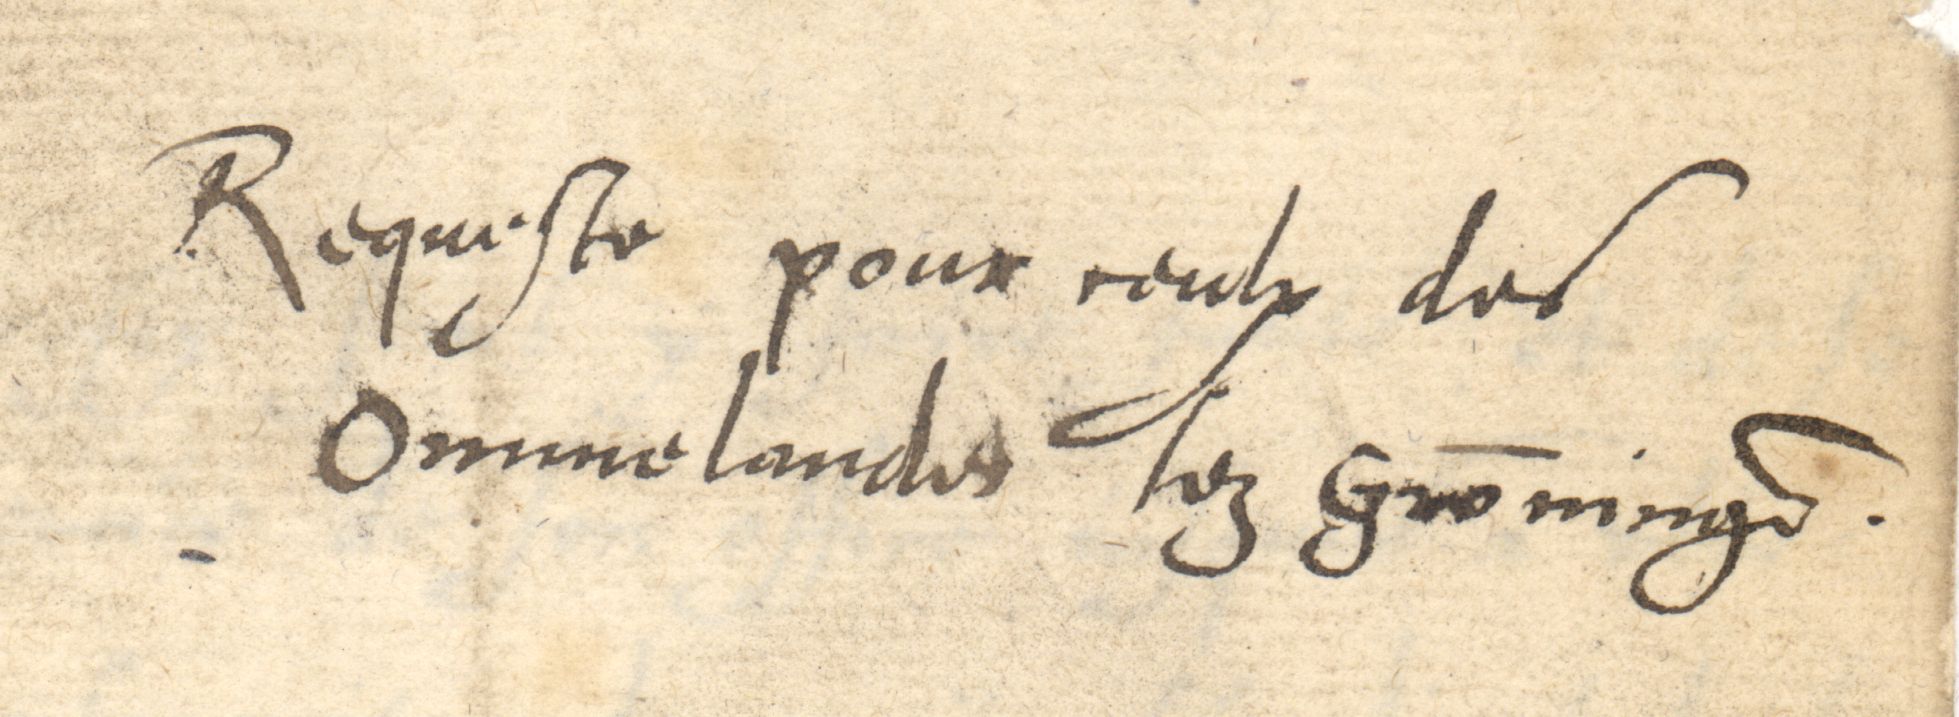 Requeste pour ceulx des
Ommelandes lez Grō̄ninge.